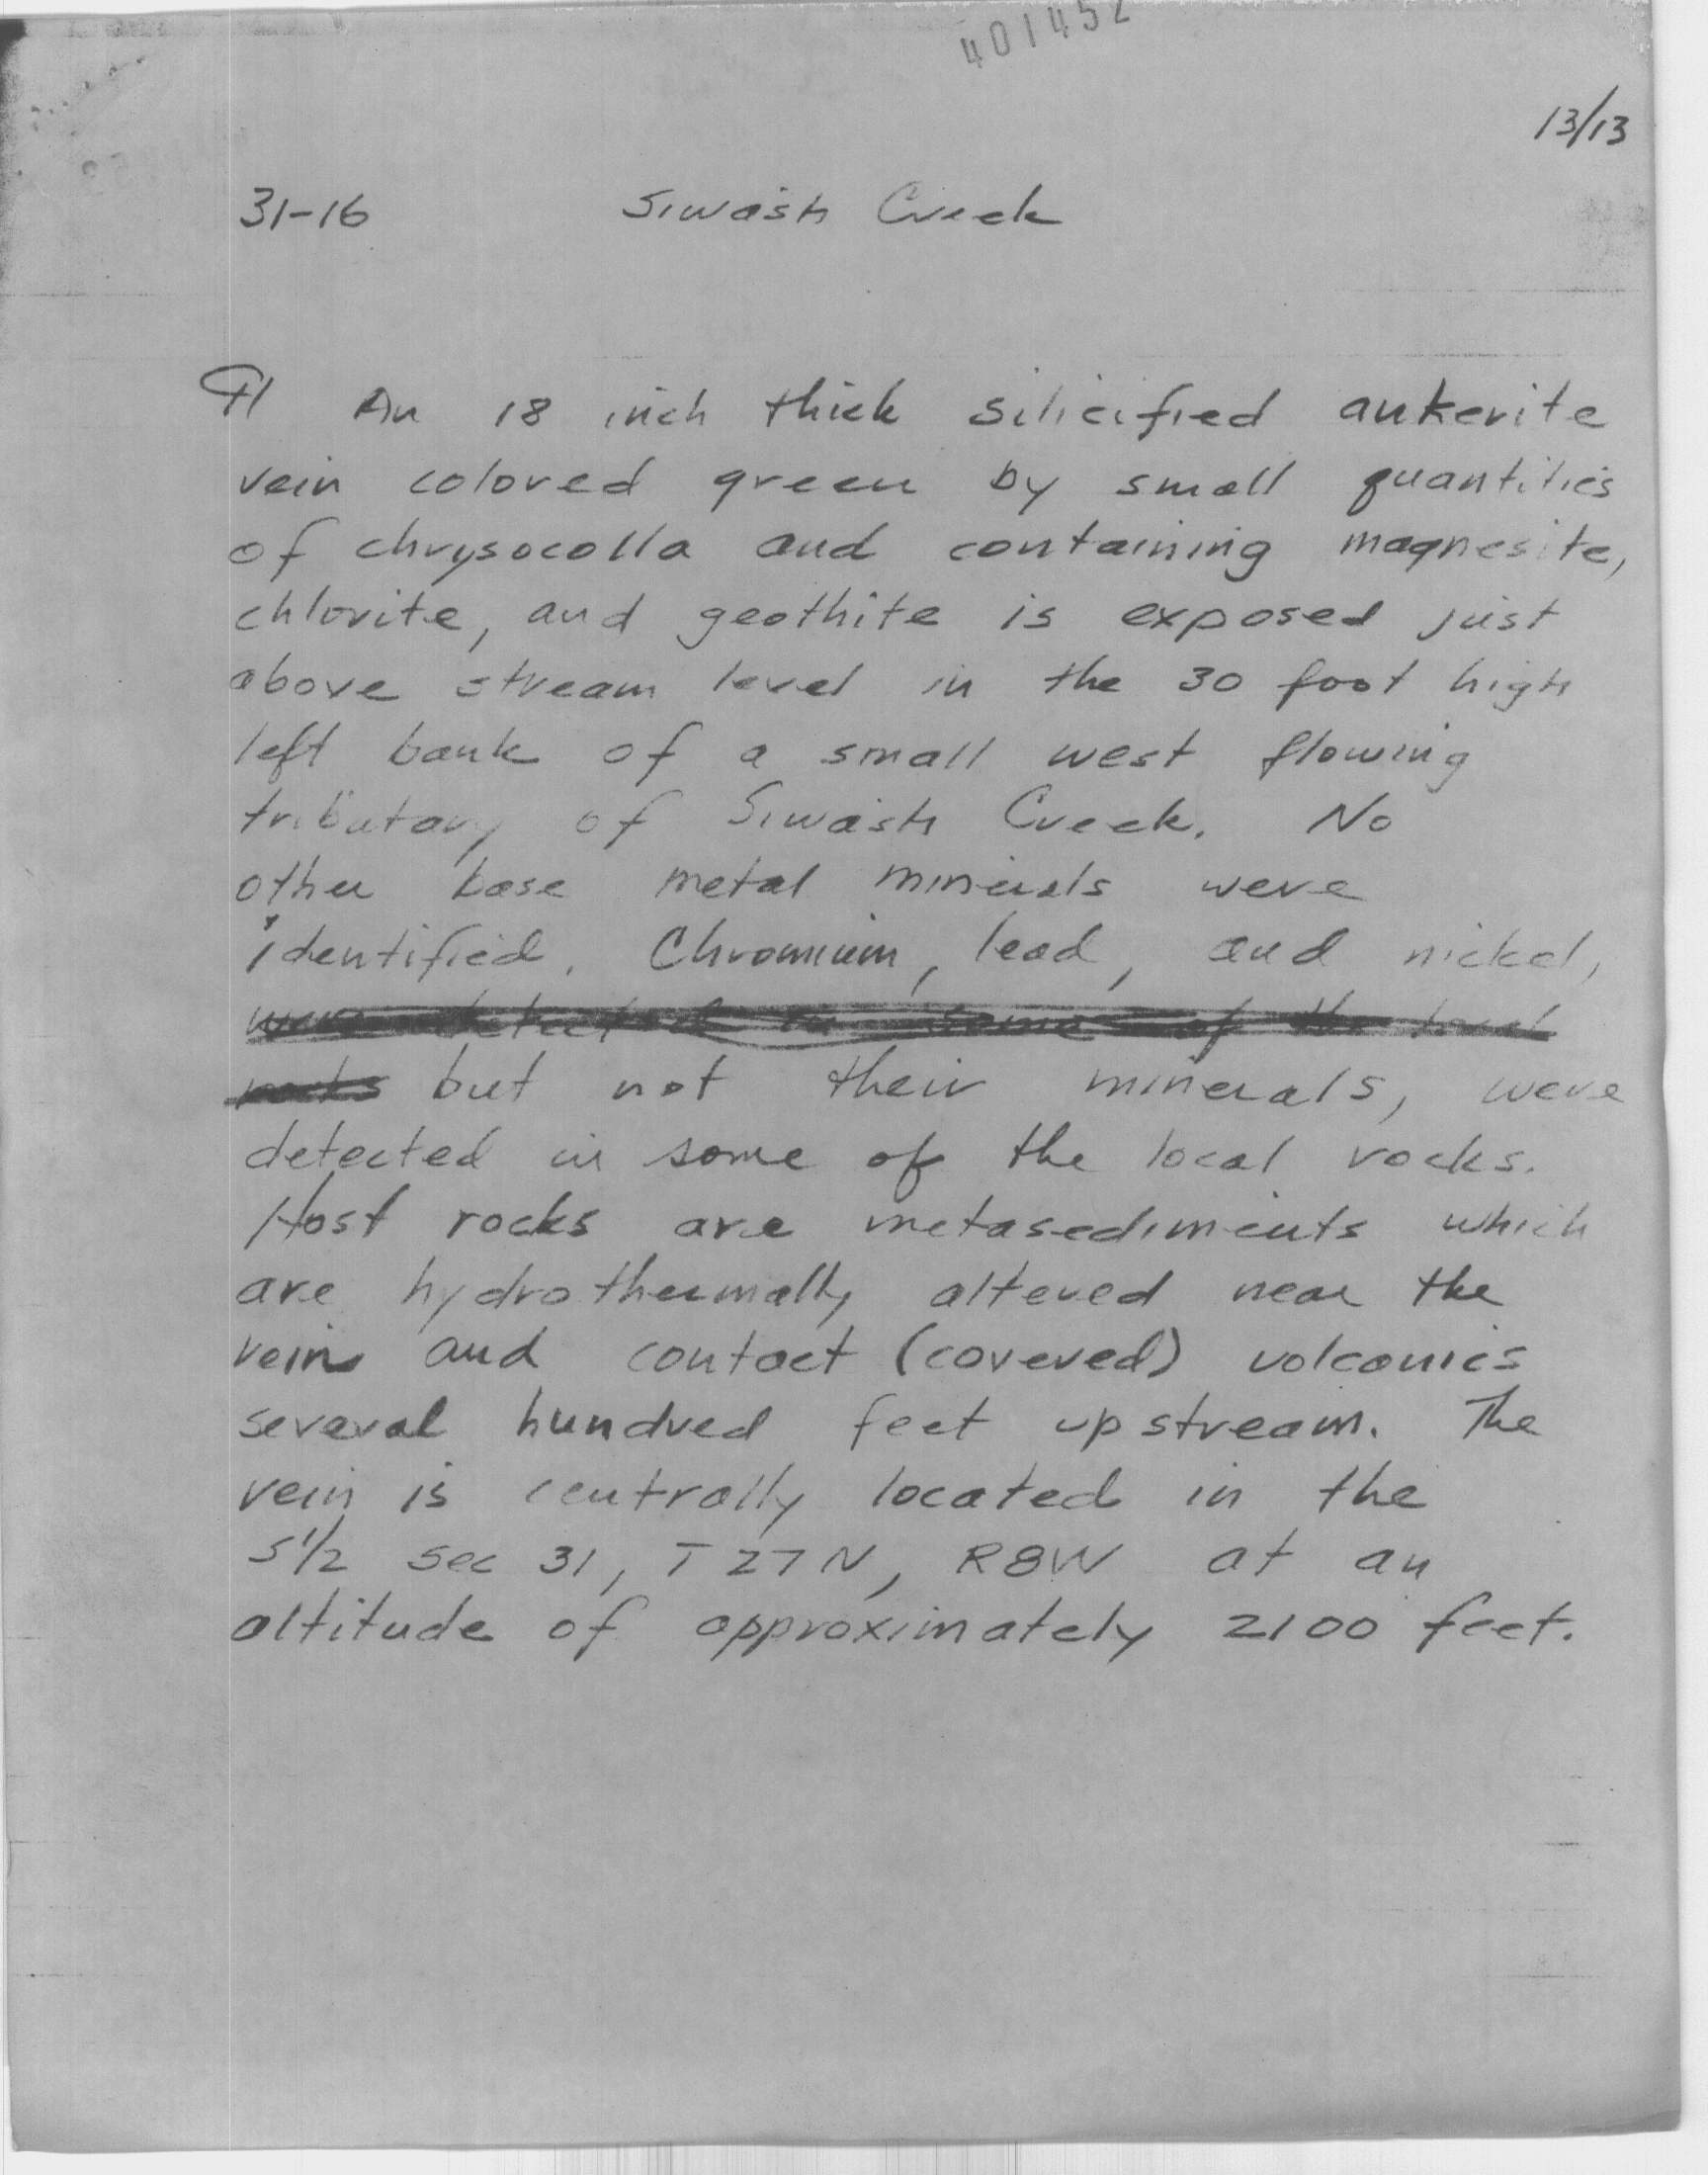 401452
13/13
31-16 Siwash Creek
¶ An 18 inch thick silicified ankerite
vein colored green by small quantities
of chrysocolla and containing magnesite,
chlorite, and geothite is exposed just
above stream level in the 30 foot high
left bank of a small west flowing
tributary of Siwash Creek. No
other base metal minerals were
identified. Chromium, lead, and nickel,
were detected in some of the local
rocks but not their minerals, were
detected in some of the local rocks.
Host rocks are metasediments which
are hydrothermally altered near the
vein and contact (covered) volcanics
several hundred feet upstream. The
vein is centrally located in the
S½ sec 31, T27N, R8W at an
altitude of approximately 2100 feet.